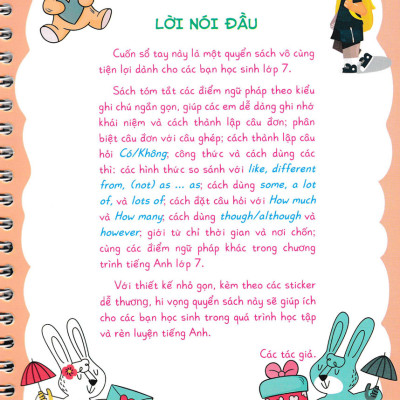 LỜI NÓI ĐẦU
Cuốn sổ tay này là một quyển sách vô cùng
tiện lợi dành cho các bạn học sinh lớp 7.
Sách tóm tắt các điểm ngữ pháp theo kiểu
ghi chú ngắn gọn, giúp các em dễ dàng ghi nhớ
khái niệm và cách thành lập câu đơn; phân
biệt câu đơn với câu ghép; cách thành lập câu
hỏi Có/Không; công thức và cách dùng các
thì: các hình thức so sánh với like, different
from, (not) as ... as; cách dùng some, a lot
of, và lots of; cách đặt câu hỏi với How much
và How many; cách dùng though/although và
however; giới từ chỉ thời gian và nơi chốn;
cùng các điểm ngữ pháp khác trong chương
trình tiếng Anh lớp 7.
Với thiết kế nhỏ gọn, kèm theo các sticker
dễ thương, hi vọng quyển sách này sẽ giúp ích
cho các bạn học sinh trong quá trình học tập
và rèn luyện tiếng Anh.
Các tác giả.